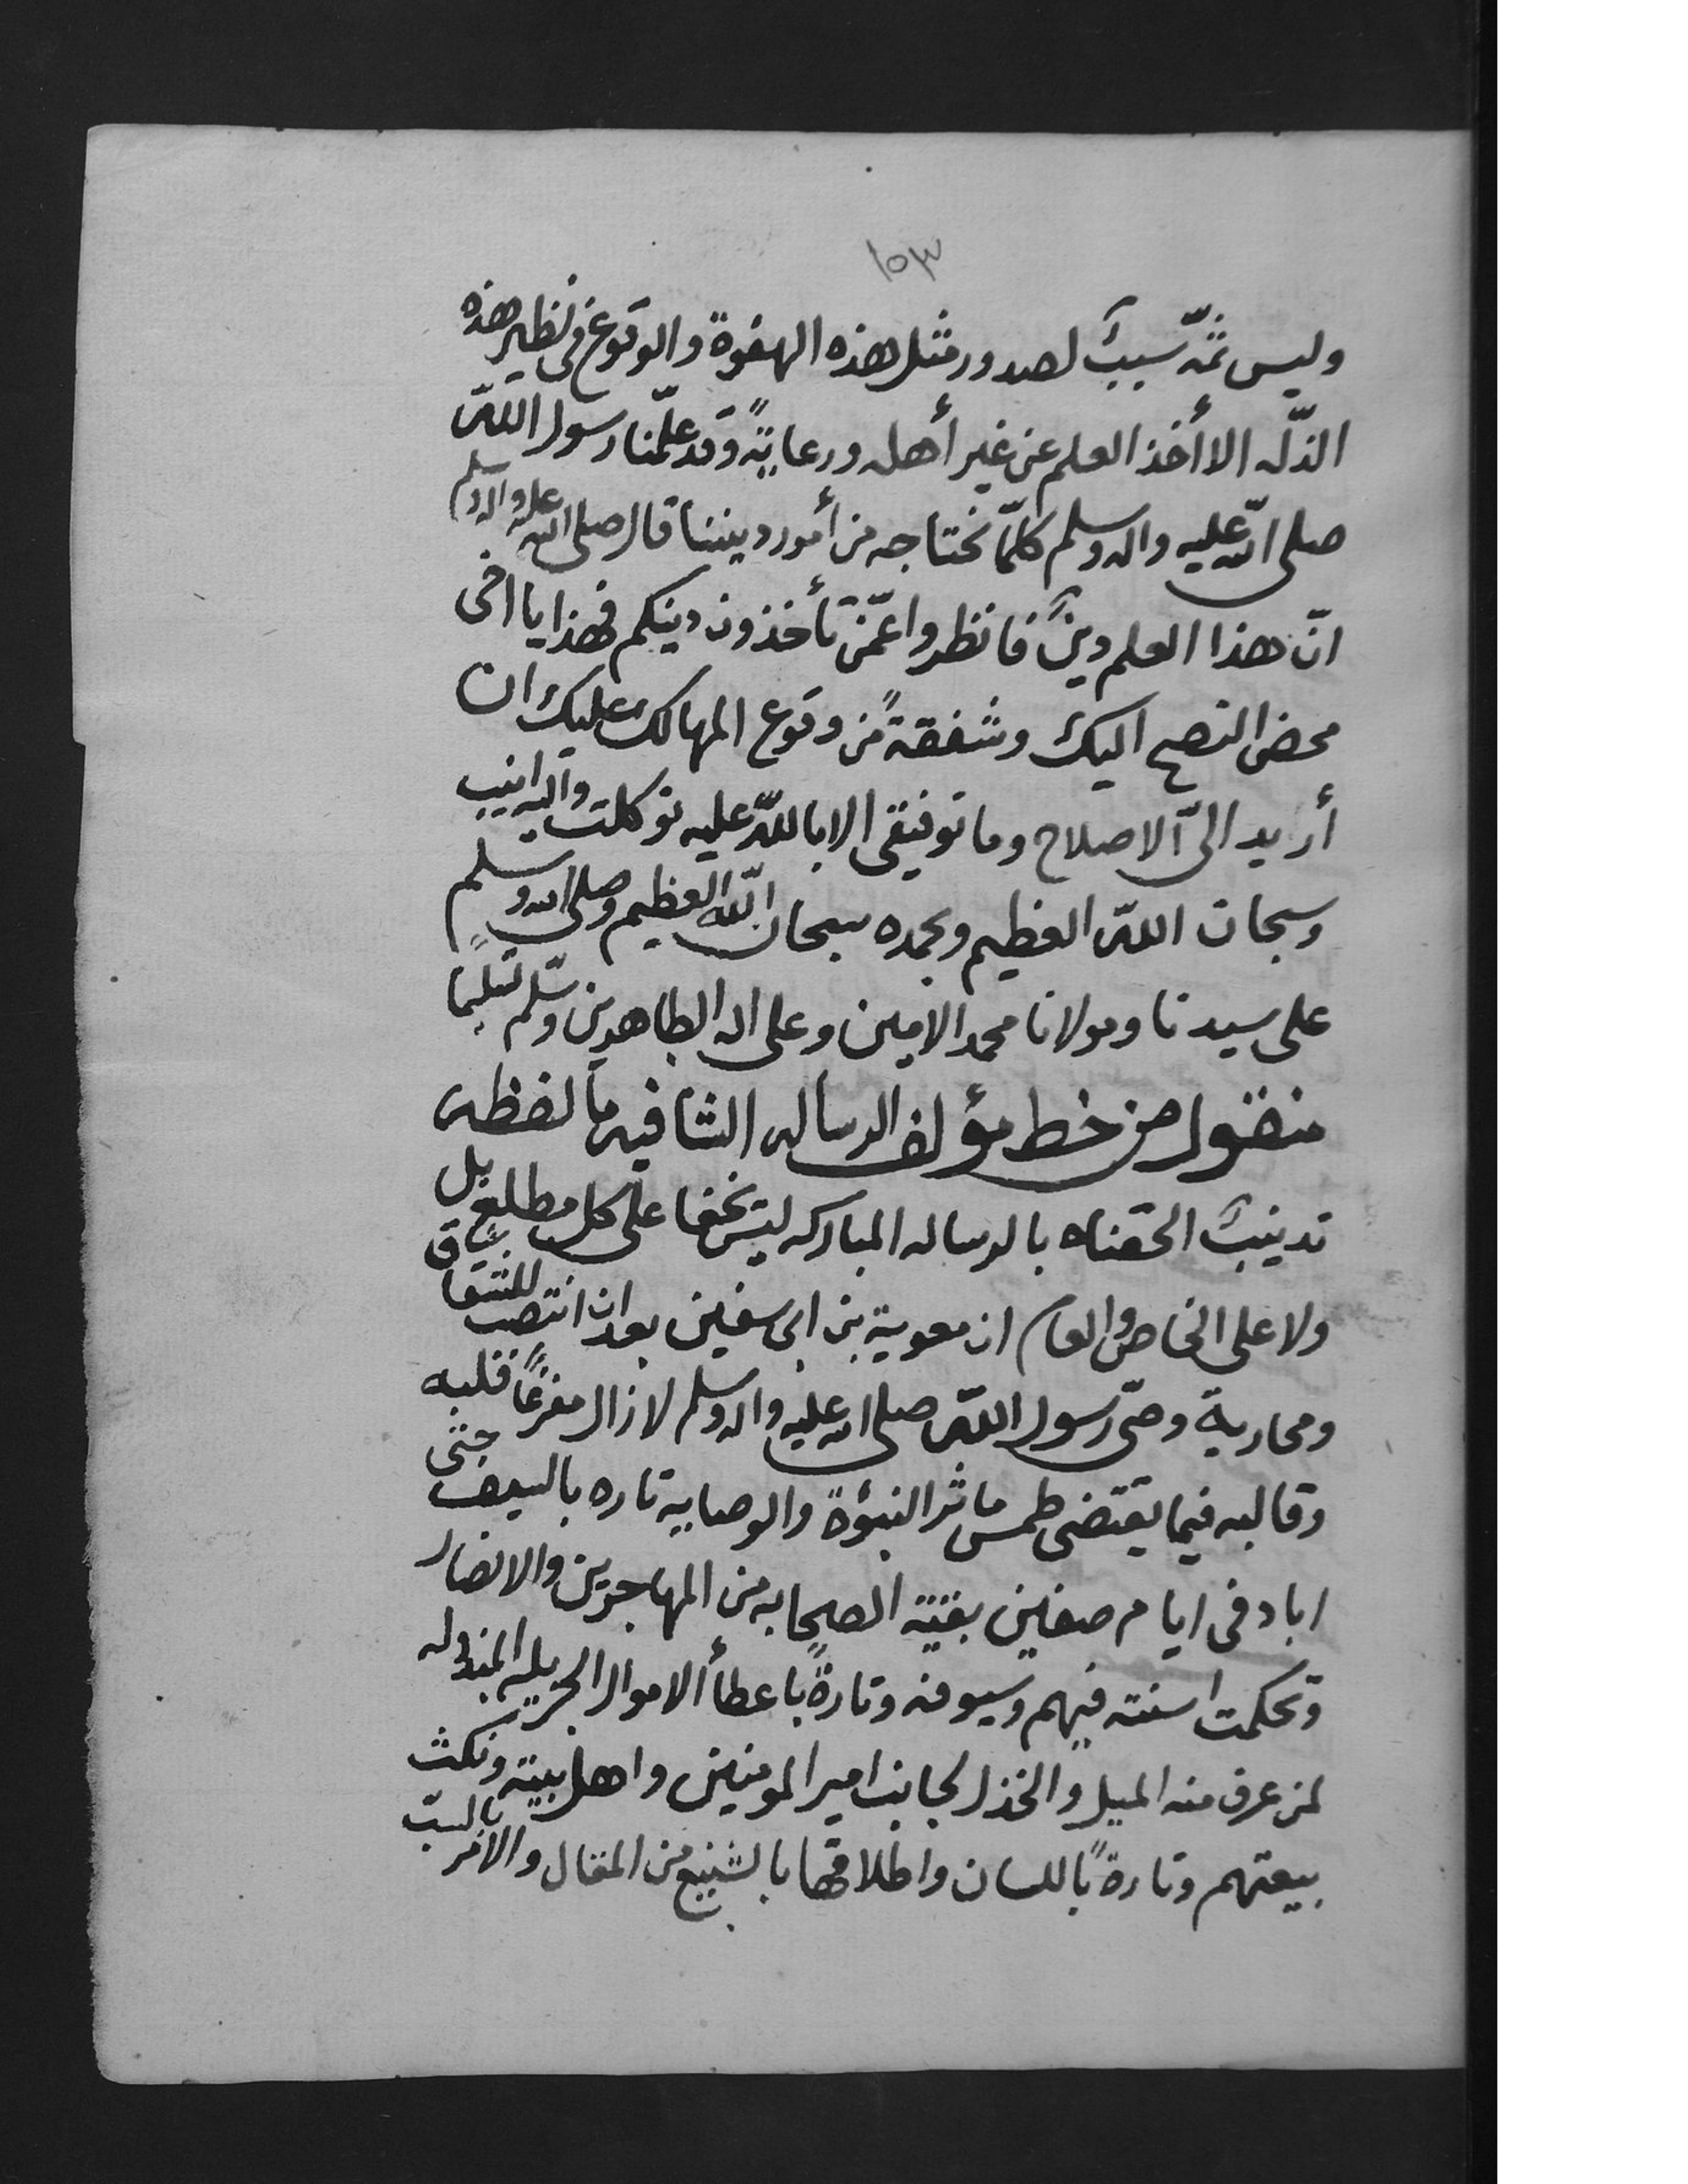 ١٥٣
وليس ثمّه سببٌ لصدور مثل هذه الهفوة والوقوع في نظير هذه
الذلّه الا أخذ العلم عن غير أهله ورعايةً وقد علّمنا رسول الله
صلى الله عليه واله وسلم كلمّا نحتاجه من أمور ديننا قال صلى الله عليه واله وسلم
انّ هذا العلم دينٌ فانظروا عمّن تأخذون دينكم فهذا يا اخى
محض النصح اليك وشفقةً من وقوع المهالك عليك ان
أريد الىّ الاصلاح وما توفيقى الا بالله عليه توكلت واليه انيب
وسبحان الله العظيم وبحمده سبحان الله العظيم وصلى الله وسلم
على سيدنا ومولانا محمد الامين وعلى اله الطاهرين وسلّم تسليمًا
منقول من خط مؤلف الرساله الشافيه ما لفظه
تدنيبٌ الحقناه بالرساله المباركه ليس يخفا على كل مطلع بل
ولا على الخاص والعام ان معوية بن ابى سفين بعد ان انتصب للشقاق
ومحاربة وصىّ رسول الله صلى الله عليه واله وسلم لا زال مفرغًا قلبه
وقالبه فيما يقتضى طمس ماثر النبؤة والوصايه تاره بالسيف حتى
اباد فى ايام صفين بقية الصحابه من المهاجرين والانصار
وتحكمت اسنته فيهم وسيوفه وتارةً باعطأ الاموال الجزيله المبذوله
لمن عرف منه الميل والخذل لجانب امير المومنين واهل بيته ونكث
بيعتهم وتارةً باللسان واطلاقها بالشنيع من المقال والامر بالسبّ